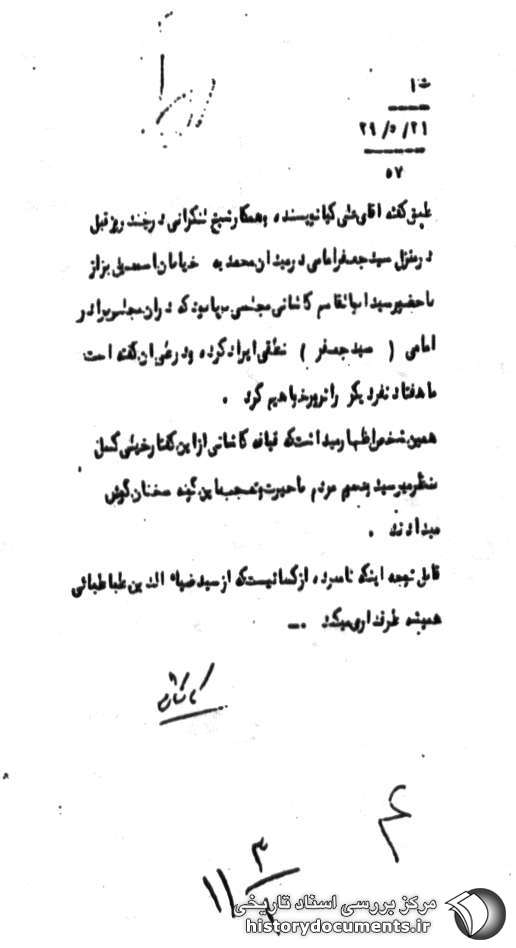 ش ۱
۲۹/۵/۲۱
۵۷
طبق گفته آقای علی کیا نویسنده و همکار شیخ لنکرانی در چند روز قبل
در منزل سید جعفر امامی در میدان محمدیه خیابان اسمعیل بزاز
با حضور سید ابوالقاسم کاشانی مجلسی بپا بود که در آن مجلس برادر
امامی ( سید جعفر ) نطقی ایراد کرده و در طی آن گفته است
ما هفتاد نفر دیگر را ترور خواهیم کرد .
همین شخص اظهار میداشت که قیافه کاشانی از این گفتار خیلی کسل
بنظر میرسید و همه مردم با حیرت و تعجب باین گونه سخنان گوش
میدادند .
قابل توجه اینکه نامبرده از کسانیست که از سید ضیاء الدین طباطبائی
همیشه طرفداری میکند .ـ
کاشانی
۴
۳
۱۱
مرکز بررسی اسناد تاریخی
historydocuments.ir